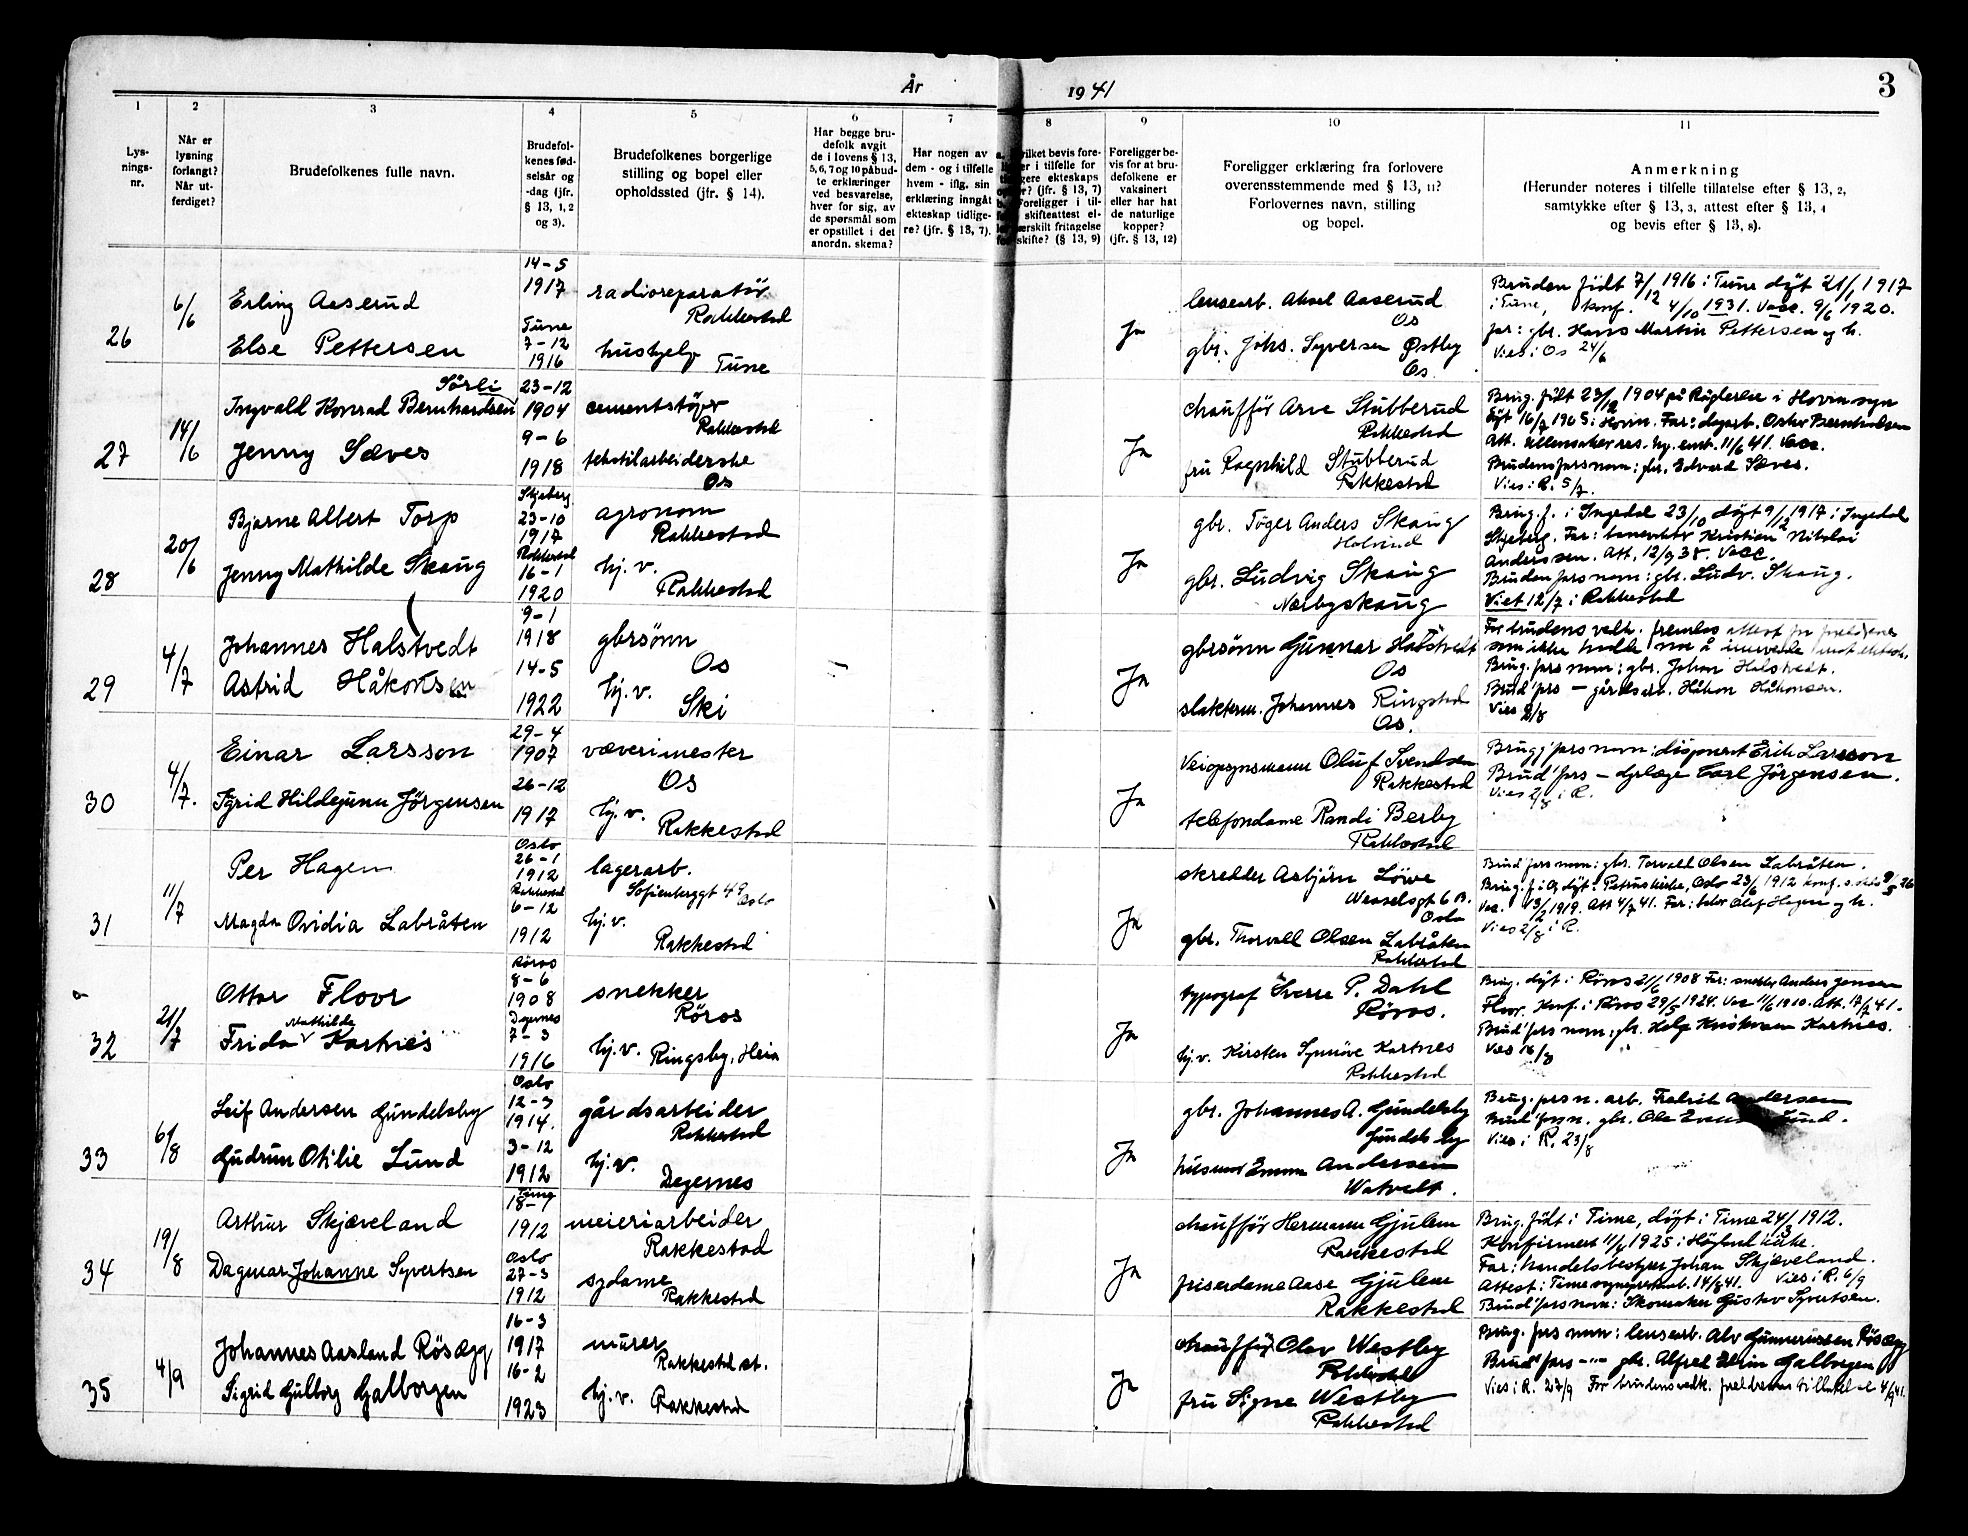 År 1941
3
1 2 3 4 5 6 7 8 9 10 11
Lys-
nings-
nr.
Når er
lysning
forlangt?
Når ut-
ferdiget?
Brudefolkenes fulle navn.
Brudefol-
kenes fød-
selsår og
-dag (jfr.
§ 13, 1, 2
og 3).
Brudefolkenes borgerlige
stilling og bopel eller
opholdssted (jfr. § 14).
Har begge bru-
defolk avgit
de i lovens § 13,
5, 6, 7 og 10 påbud-
te erklæringer
ved besvarelse,
hver for sig, av
de spørsmål som
er opstillet i det
anordn. skema?
Har nogen av
dem - og i tilfelle
hvem - iflg. sin
erklæring inngåt
ekteskap tidlige-
re? (jfr. § 13, 7).
ilket bevis fore-
er i tilfelle for
gere ekteskaps
r? (jfr. § 13, 7)
Foreligger i til-
skifteattest el-
ærskilt fritagelse
skifte? (§ 13, 9)
Foreligger be-
vis for at bru-
defolkene er
vaksinert
eller har hat
de naturlige
kopper?
(jfr. § 13, 12)
Foreligger erklæring fra forlovere
overensstemmende med § 13, 11?
Forlovernes navn, stilling
og bopel.
Anmerkning
(Herunder noteres i tilfelle tillatelse efter § 13, 2,
samtykke efter § 13, 3, attest efter § 13, 4
og bevis efter § 13, 8).
26
6/6
Erling Aaserud
Else Pettersen
14-5
1917
Tune
7-12
1916
radioreparatör
Rakkestad
hushjelp
Tune
Ja
lensearb. Aksel Aaserud
Os
gbr. Johs. Syversen Østby
Os
Bruden födt 7/12 1916 i Tune döpt 21/1 1917
i Tune, konf. 4/10 1931. Vacc. 9/6 1920.
far: gbr. Hans Martin Pettersen og h.
Vies i Os 24/6
27
14/6
Sörli
Ingvald Konrad Bernhardsen
Jenny Sæves
23-12
1904
9-6
1918
cementstöper
Rakkestad
tekstilarbeiderske
Os
Ja
chaufför Arve Stubberud
Rakkestad
fru Ragnhild Stubberud
Rakkestad
Brug. födt 23/12 1904 på i Hovin sogn
döpt 16/7 1905 i Hovin. Far: dagarb. Bernhardsen
Att. Ullensaker 11/6 41. Vacc.
Brudens farsnavn: gbr. Edvard Sæves.
Vies i R. 5/7.
28
20/6
Bjarne Albert Torp
Jenny Mathilde Skaug
Skjeberg
23-10
1917
Rakkestad
16-1
1920
agronom
Rakkestad
hj. v.
Rakkestad
Ja
gbr. Töger Anders Skaug
gbr. Ludvig Skaug
Nærbyskaug
Brug. f. i Ingedal 23/10 döpt 9/12 1917 i Ingedal
Skjeberg. Far: Kristian Nikolai
Anderssen. Att. 12/9 38. Vacc.
Bruden farsnavn: gbr. Ludv. Skaug.
Viet 12/7 i Rakkestad
29
4/7
Johannes Halstvedt
Astrid Håkonsen
9-1
1918
14-5
1922
gbrsönn
Os
hj. v.
Ski
Ja
gbrsönn Gunnar Halstvedt
Os
slakterm. Johannes Ringstad
Os.
For brudens vedk. fremlas attest fra foreldrene
som ikke hadde noe å innvende mot ektesk.
Brug. farsnavn: gbr. Johan Halstvedt.
Brud' fars — gårdsarb. Håkon Håkonsen.
Vies 2/8
30
4/7.
Einar Larsson
Sigrid Hildegunn Jörgensen
29-4
1907
26-12
1917
væverimester
Os
hj. v.
Rakkestad
Ja
Veiopsynsmann Oluf Svendsen
Rakkestad
telefondame Randi Berby
Rakkestad
Brugg' farsnavn: disponent Erik Larsson
Brud' fars — dyrlæge Carl Jörgensen.
Vies 2/8 i R.
31
11/7
Per Hagen
Magda Ovidia Labråten
Oslo
26-1
1912
Rakkestad
6-12
1912
lagerarb.
Sofienberggt 49 Oslo
hj. v.
Rakkestad
Ja
skredder Asbjörn Löwe
Wesselsgt 6 B.
Oslo
gbr. Thorvall Olsen Labråten
Rakkestad
Brud' farsnavn: gbr. Torvall Olsen Labråten.
Brug. f. og döpt: Petruskirke, Oslo 23/6 1912 konf.
Vac. 13/2 1919. Att 4/7 41. Far: Olaf Hagen og h.
Vies 2/8 i R.
32
21/7
Ottar Floor
Mathilde
Frida Kartnes
Röros
8-6
1908
Degernes
7-3
1916
snekker
Röros
hj. v. Ringsby, Heia
Ja
typograf Sverre P. Dahl
Röros.
hj. v. Kirsten Synnöve Kartnes
Rakkestad
Brug. döpt i Röros 21/6 1908 Far: snekker Anders Jensen
Floor. Konf. i Röros 29/5 1924. Vac 11/6 1910. Att. 17/7 41.
Brud' fars navn: gbr. Helge Kristiansen Kartnes.
Vies 16/8
33
6/8
Leif Andersen Gundelsby
Gudrun Otilie Lund
Oslo
12-3
1914.
3-12
1912
gårdsarbeider
Rakkestad
hj. v.
Degernes
Ja
gbr. Johannes A. Gundelsby
Gundelsby
husmor Emma Andersen
Watvedt.
Brug. farsn. arb. Fredrik Andersen
Brud' farsn. gbr. Ole Lund.
Vies i R. 23/8
34
19/8
Arthur Skjæveland
Dagmar Johanne Syvertsen
Time
18-1
1912
Oslo
27-3
1912
meieriarbeider
Rakkestad
sydame
Rakkestad
Ja
chaufför Hermann Gjulem
Rakkestad
friserdame Aase Gjulem
Rakkestad
Brug. födt i Time, döpt i Time 24/3 1912.
Konfirmert 11/4 1925 i Höyland kirke.
Far: handelsbestyrer Johan Skjæveland.
Attest: Time sogneprestemb. 14/8 41. Vies i R. 6/9
Brud' farsnavn: Skomaker Gustav Syvertsen.
35
4/9
Johannes Aasland Rösægg
Sigrid Gulborg Galborgen
16-3
1917
16-2
1923
murer
Rakkestad st.
hj. v. Rakkestad
Ja
chaufför Olav Westby
Rakkestad
fru Signe Westby
Rakkestad
Brug. fars navn: lensearb. Alv Gunneriussen Rösægg
Brud' fars —"— gbr. Alfred Edvin Galborgen
Vies i R. 27/9 For brudens vedk. foreldrenes tillatelse 4/9 41.